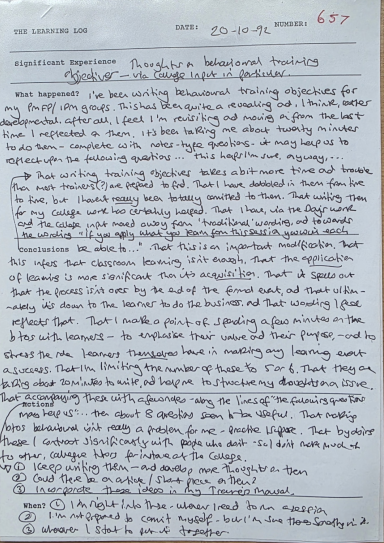 THE LEARNING LOG DATE: 20-10-92 NUMBER: 657
Significant Experience Thoughts on behavioural training
objectives – via College input in particular.
What happened? I've been writing behavioural training objectives for
my PMFP/IPM groups. This has been quite a revealing and, I think,
developmental. After all, I feel I'm revisiting and moving on from the last
time I reflected on them. It's been taking me about twenty minutes
to do them – complete with notes-type questions – it may help us to
reflect upon the following questions ... this helps I'm sure, anyway, ...
→ That writing training objectives takes a bit more time and trouble
than most trainers (?) are prepared to find. That I have dabbled in them from time
to time, but I haven't really been totally committed to them. That writing them
for my college work has certainly helped. That I have, via the work
and the college input moved away from 'traditional' wording, and towards
the wording "If you apply what you learn from this session you will each
Conclusions be able to ... That this is an important modification. That
this infers that classroom learning isn't enough, that the application
of learning is more significant than its acquisition. That it spells out
that the process isn't over by the end of the formal event, and that ultim-
-ately it's down to the learner to do the business, and that wording I feel
reflects that. That I make a point of spending a few minutes on the
btos with learners – to emphasise their value and their purpose, – and to
stress the role learners themselves have in making any learning event
a success. That I'm limiting the number of these to 5 or 6. That they are
taking about 20 minutes to write, and help me to structure my thoughts on an issue.
That accompanying these with a few words – along the lines of "the following questions
Actions may help us": ... then about 8 questions seem to be useful. That making
btos behavioural isn't really a problem for me – practice I suppose. That by doing
these I contrast significantly with people who don't – so I don't
to other, college tutors for instance at the College.
① Keep writing them – and develop more thoughts on them
② Could there be an article / short piece on them?
③ Incorporate these ideas in my Trainer's Manual.
When? ① I'm right into these – whenever I need to run a session
② I'm not prepared to commit myself – but I'm sure there's something in it.
③ Whenever I start to put it together.